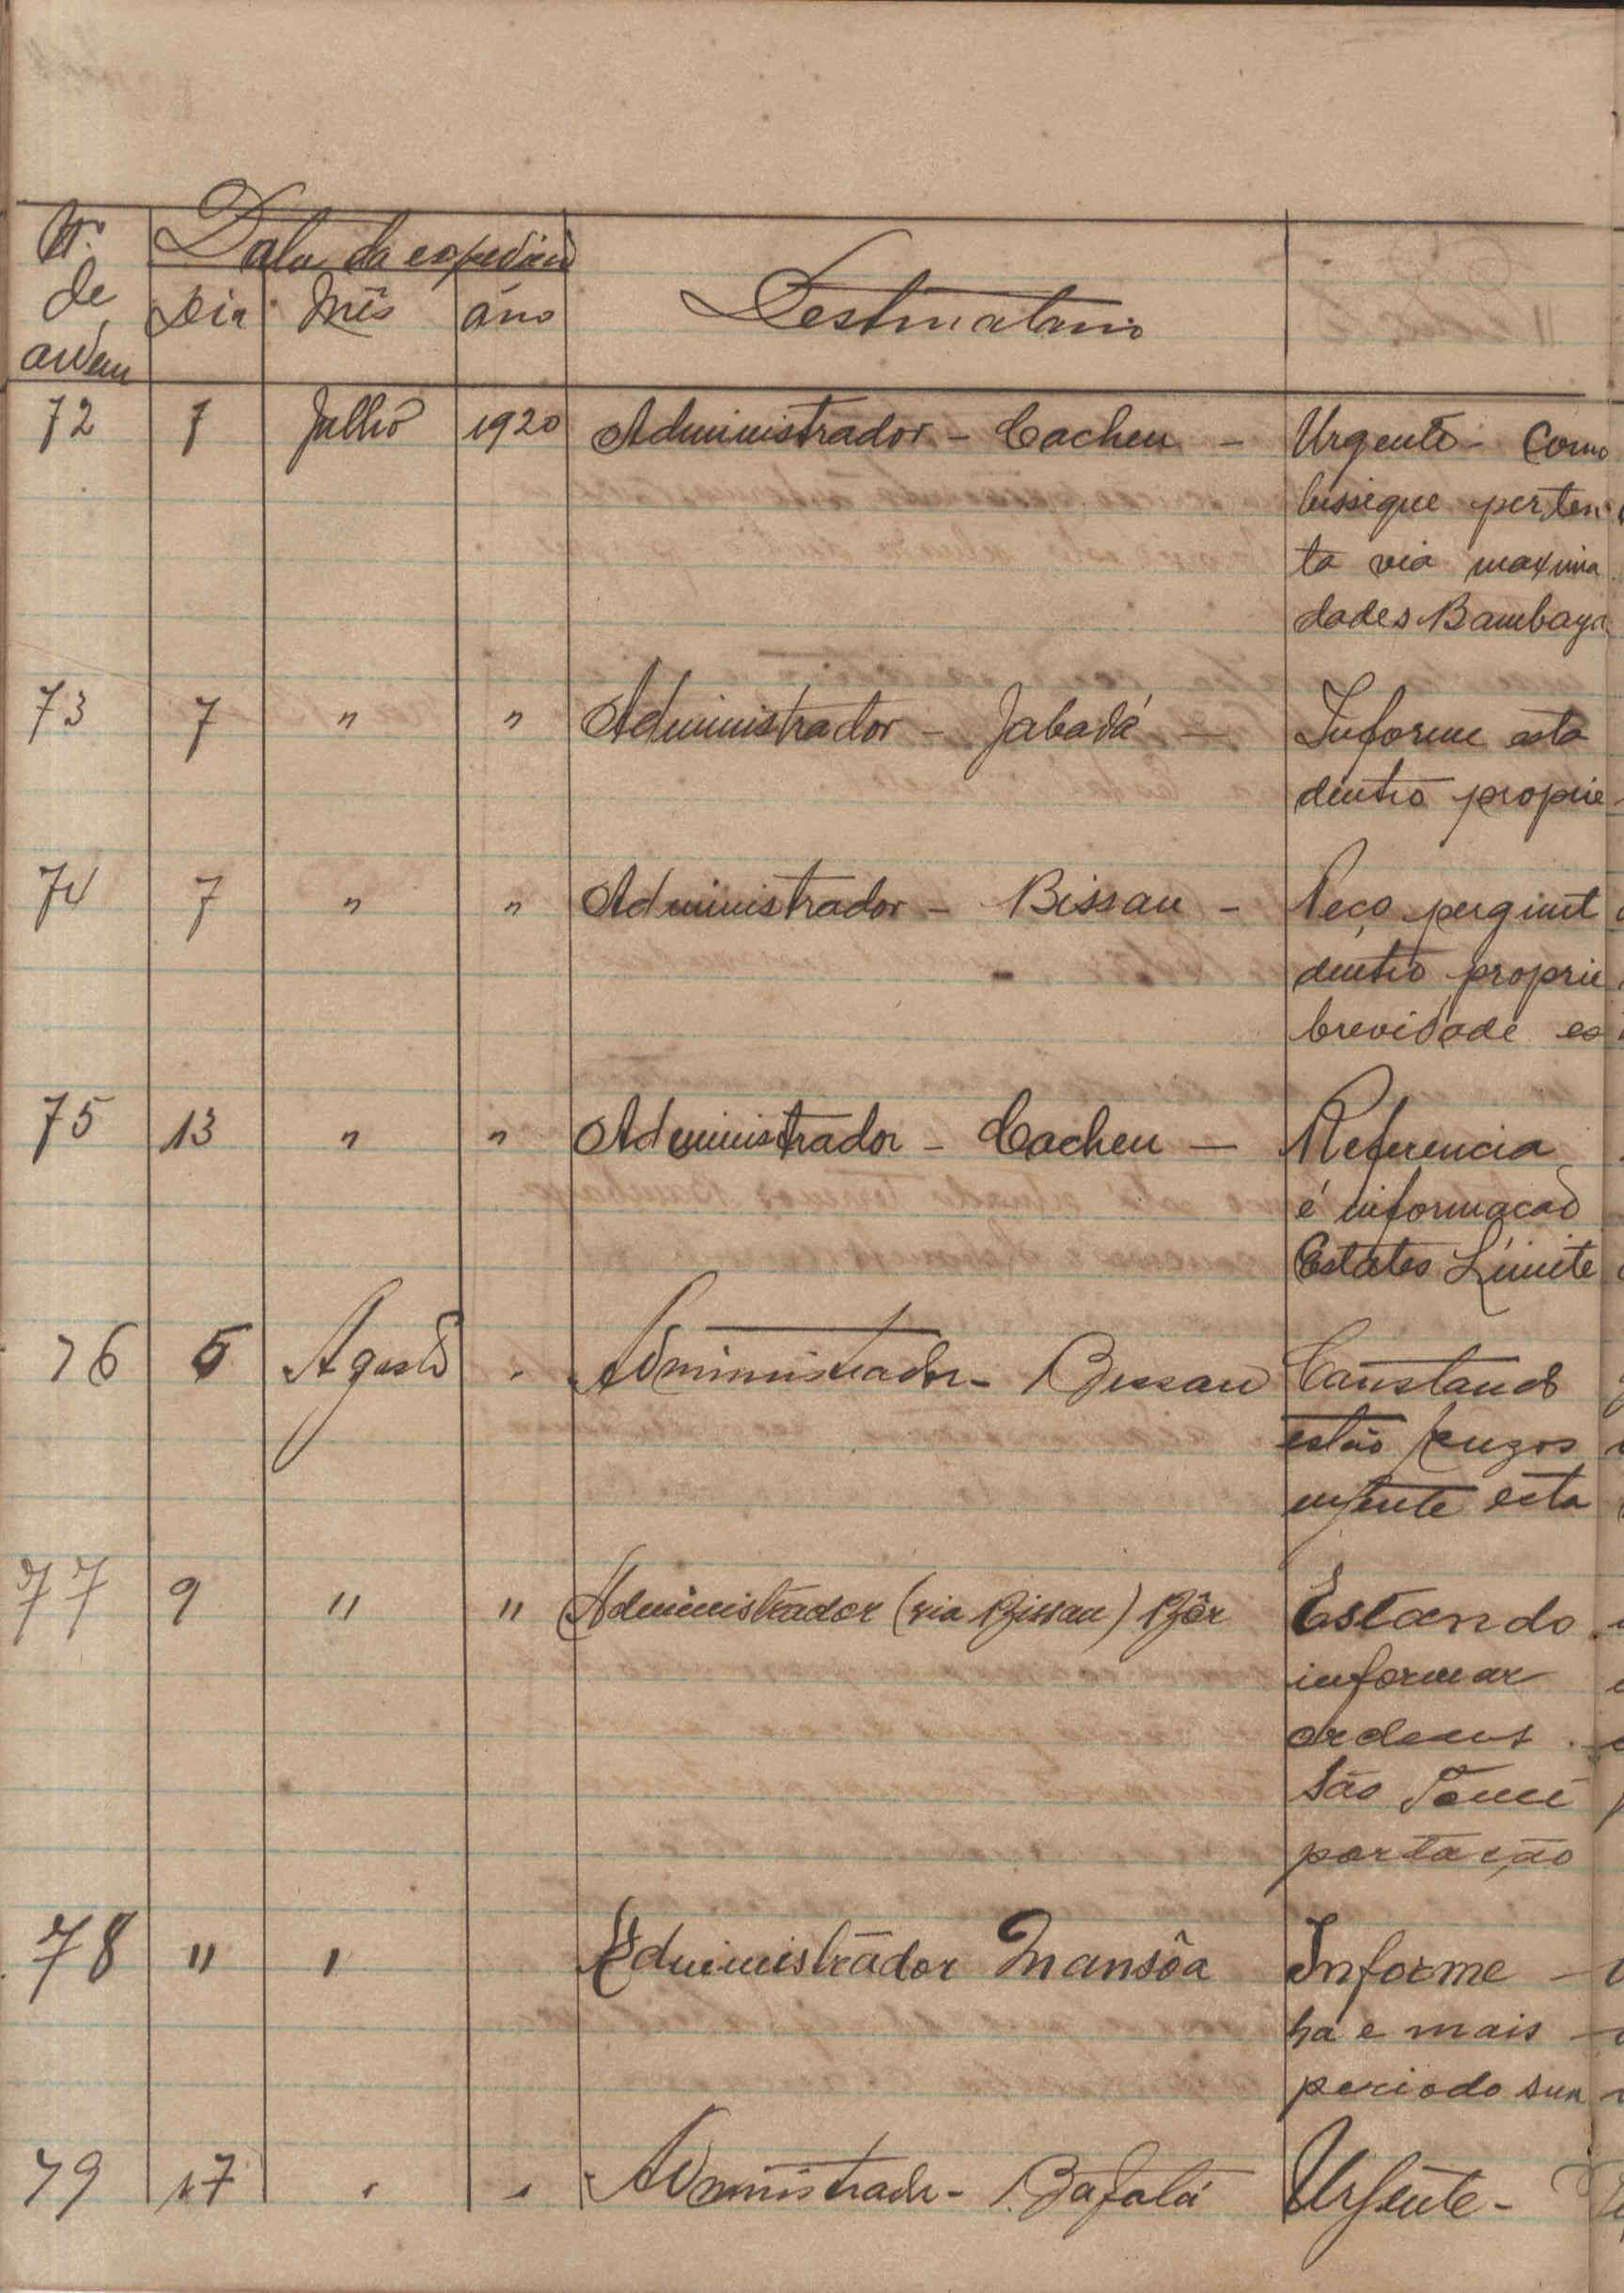 Nº Data da expedição
de Dia Mês âno Destinatario
ordem
72 7 Julho 1920 Administrador - Cacheu - Urgente - Como
bissique perten
ta via maxima
dades Bambaya
73 7 " " Administrador - Jabadá - Informe esta
dentro proprie
74 7 " " Administrador - Bissau - Peço pergunt
dentro proprie
brevidade es
75 13 " " Administrador - Cacheu - Referencia
é informação
Estates Limite
76 5 Agosto " Administrador - Bissau Constando
estão
urgente esta
77 9 " " Administrador (via Bissau) Bôr Estando
informar
ordens
São Tomé
portação
78 " " Administrador Mansôa Informe
ha e mais
periodo sua
79 17 " " Administrador - Bafatá Urgente -